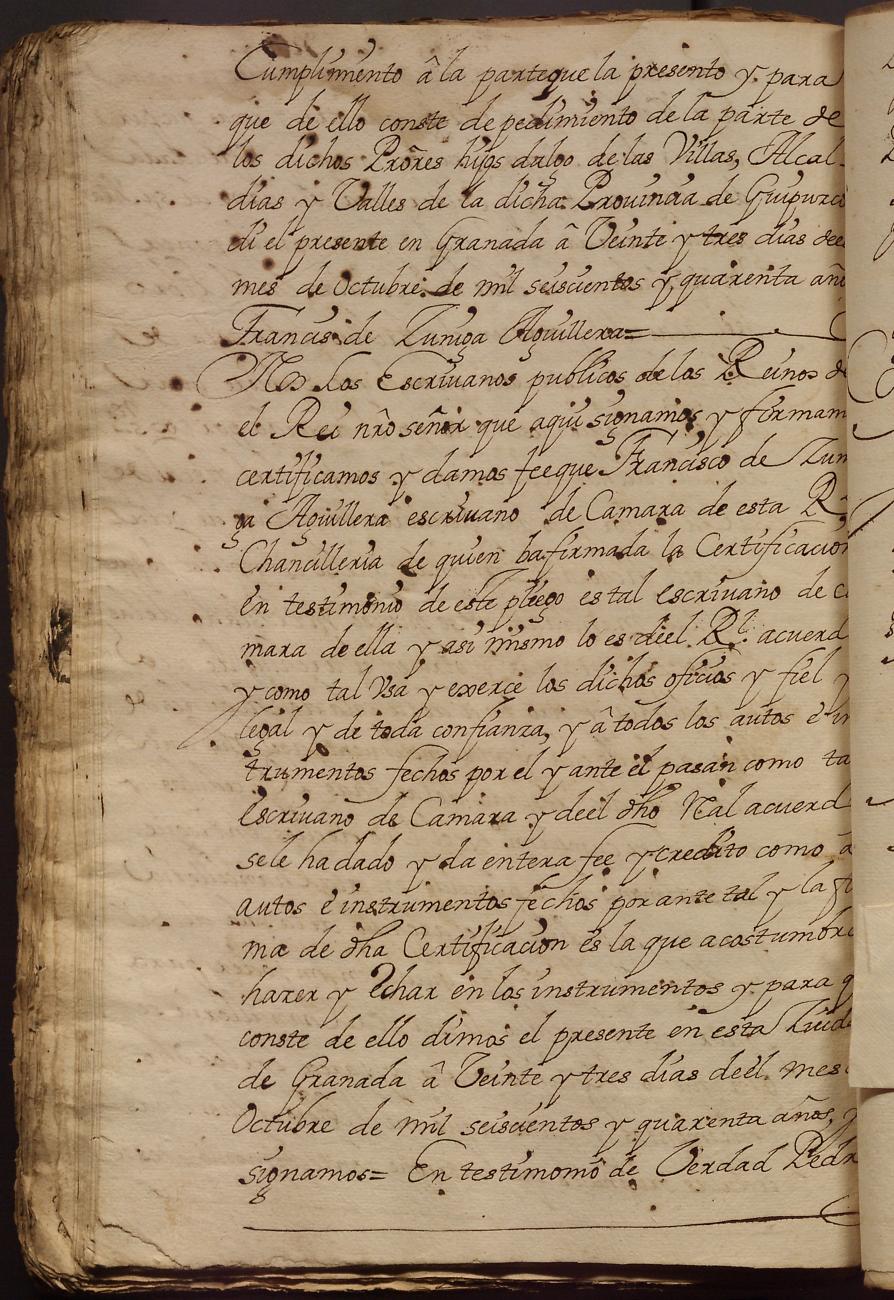 Cumplimiento â la parte que la presento y para
que de ello conste de pedimiento de la parte de
los dichos Prôres hijos dalgo de las Villas, Alcal-
dias y Valles de la dicha Provincia de Guipuzco
di el presente en Granada â Veinte y tres dias deel
mes de Octubre de mil seiscientos y quarenta año
Francis.de Zuniga Aguillera=
Nos Los Escrivanos publicos de los Reinos de
el Rei nr̃o señor que aqui signamos y firmam
certificamos y damos fee que Francisco de Zun
ga Aguillera escrivano de Camara de esta Rl
Chancilleria de quien ba firmada la Certificacion
en testimonio de este pliego es tal escrivano de ca
mara de ella y asi mismo lo es deel Rl. acuerd
y como tal Usa y exerce los dichos oficios y fiel y
legal y de toda confianza, y â todos los autos e in
trumentos fechos por el y ante él pasan como ta
Escrivano de Camara y deel dho Real acuerd
se le ha dado y da entera fee y credito como a
autos e instrumentos fechos por ante tal y la fir
ma de dha Certificacion es la que acostumbra
hazer y Echar en los instrumentos y para q
conste de ello dimos el presente en esta Ziuda
de Granada â Veinte y tres dias deel mes
Octubre de mil seiscientos y quarenta años, y
signamos= En testimonio de Verdad Pedr